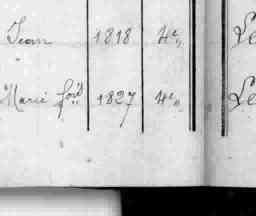 Jean 1818 4e, Le
"
Marie foi 1827 4e, Le